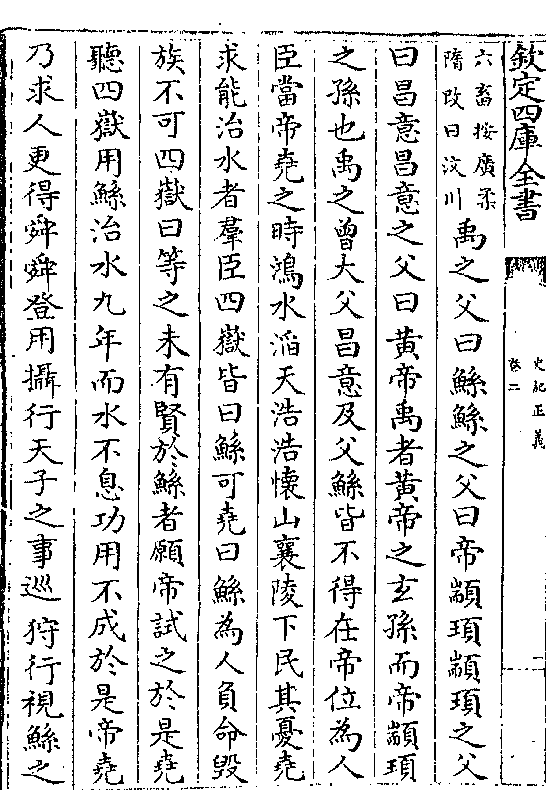 欽定四庫全書
史記正義
卷二
二
六畜按廣柔
隋改曰汶川
禹之父曰鯀鯀之父曰帝顓頊顓頊之父
曰昌意昌意之父曰黃帝禹者黃帝之玄孫而帝顓頊
之孫也禹之曾大父昌意及父鯀皆不得在帝位為人
臣當帝堯之時鴻水滔天浩浩懷山襄陵下民其憂堯
求能治水者羣臣四嶽皆曰鯀可堯曰鯀為人負命毀
族不可四嶽曰等之未有賢於鯀者願帝試之於是堯
聽四嶽用鯀治水九年而水不息功用不成於是帝堯
乃求人更得舜舜登用攝行天子之事巡狩行視鯀之